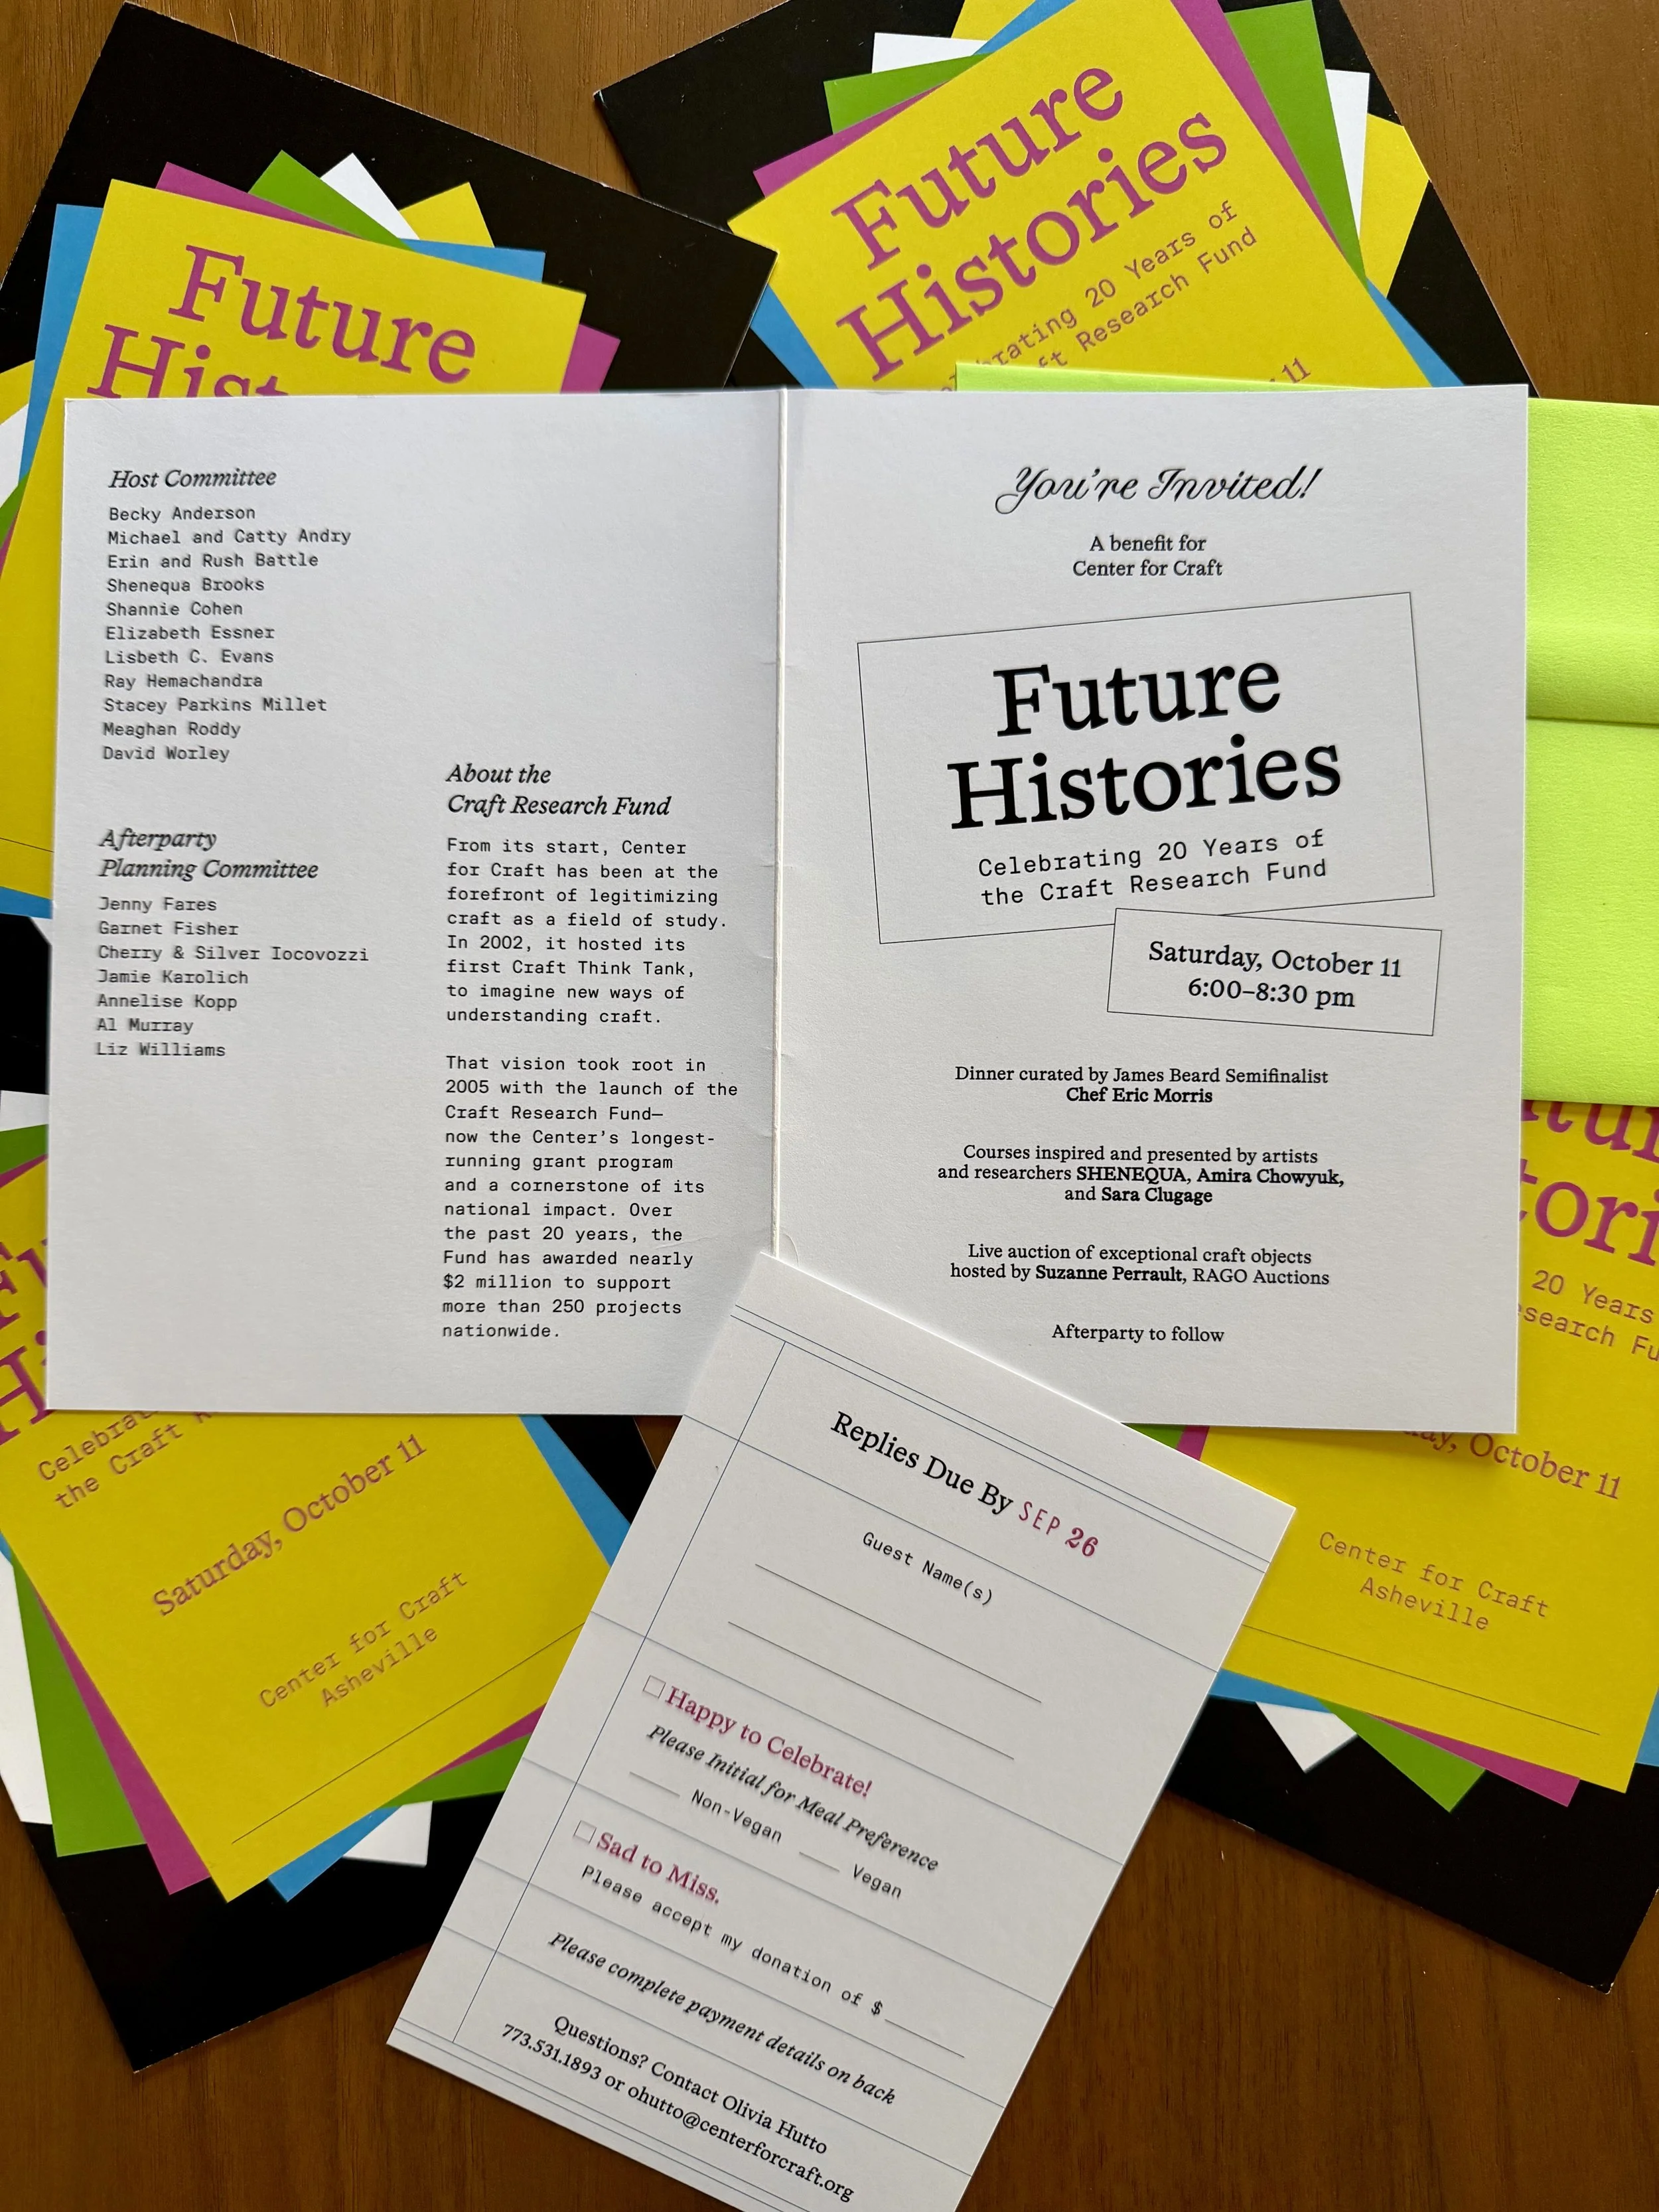 Future
Histories
rating 20 Years of
ft Research Fund
11
Future
Hist
Host Committee
Becky Anderson
Michael and Catty Andry
Erin and Rush Battle
Shenequa Brooks
Shannie Cohen
Elizabeth Essner
Lisbeth C. Evans
Ray Hemachandra
Stacey Parkins Millet
Meaghan Roddy
David Worley
Afterparty
Planning Committee
Jenny Fares
Garnet Fisher
Cherry & Silver Iocovozzi
Jamie Karolich
Annelise Kopp
Al Murray
Liz Williams
About the
Craft Research Fund
From its start, Center
for Craft has been at the
forefront of legitimizing
craft as a field of study.
In 2002, it hosted its
first Craft Think Tank,
to imagine new ways of
understanding craft.
That vision took root in
2005 with the launch of the
Craft Research Fund—
now the Center's longest-
running grant program
and a cornerstone of its
national impact. Over
the past 20 years, the
Fund has awarded nearly
$2 million to support
more than 250 projects
nationwide.
You're Invited!
A benefit for
Center for Craft
Future
Histories
Celebrating 20 Years of
the Craft Research Fund
Saturday, October 11
6:00–8:30 pm
Dinner curated by James Beard Semifinalist
Chef Eric Morris
Courses inspired and presented by artists
and researchers SHENEQUA, Amira Chowyuk,
and Sara Clugage
Live auction of exceptional craft objects
hosted by Suzanne Perrault, RAGO Auctions
Afterparty to follow
Replies Due By SEP 26
Guest Name(s)
Happy to Celebrate!
Please Initial for Meal Preference
Non-Vegan
Vegan
Sad to Miss.
Please accept my donation of $
Please complete payment details on back
Questions? Contact Olivia Hutto
773.531.1893 or ohutto@centerforcraft.org
Fu
Hi
Celebrat
the Craft R
Saturday, October 11
Center for Craft
Asheville
tur
tori
20 Years
search Fu
ay, October 11
Center for Craft
Asheville